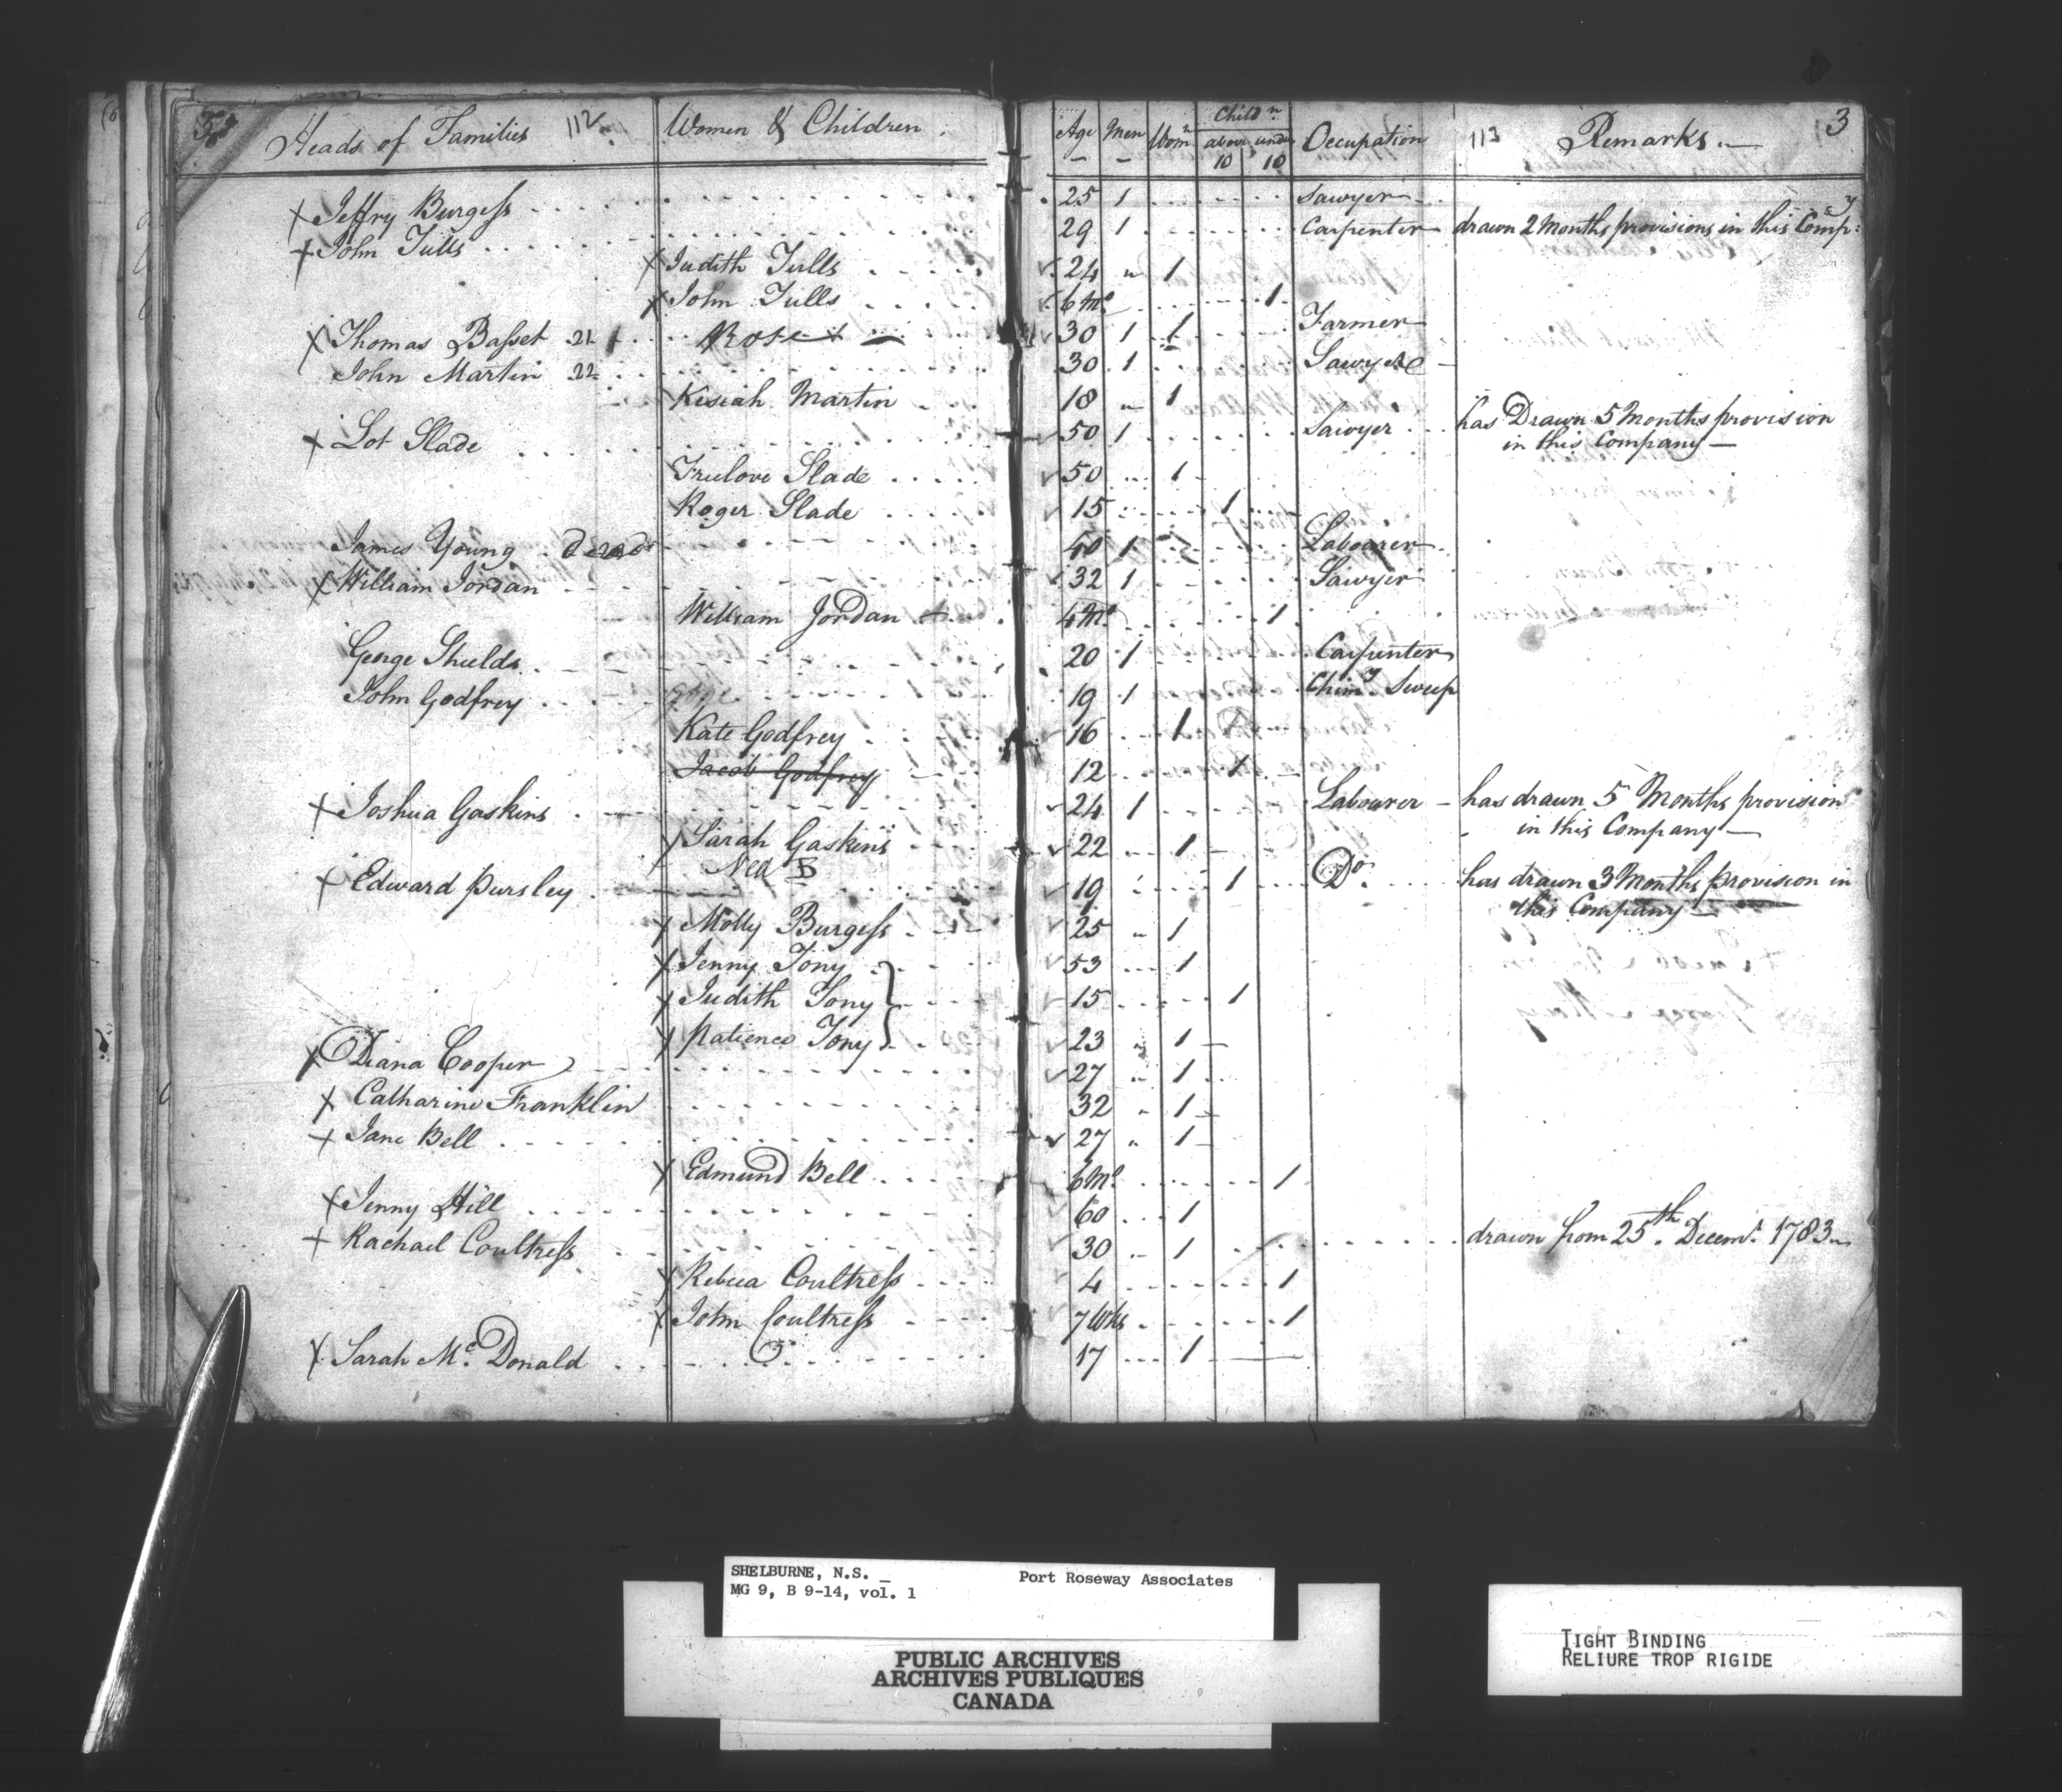 Heads of Families 112 Women & Children. Age Men Wom.n Child.n above 10 under 10 Occupation 113 Remarks. 3
Jeffry Burgess 25 1 Sawyer
John Tulls 29 1 Carpenter drawn 2 Months provisions in this Comp:y
Judith Tulls 24 " 1
John Tulls 6 Mo 1
Thomas Basset 21 Rose 30 1 1 Farmer
John Martin 22 30 1 Sawyer
Kesiah Martin 18 " 1
Lot Slade 50 1 Sawyer has Drawn 5 Months provision
in this Company
Trulove Slade 50 1
Roger Slade 15 1
James Young Dead 40 1 Labourer
William Jordan 32 1 Sawyer
William Jordan + 4 Mo 1
George Shields 20 1 Carpenter
John Godfrey gone 19 1 Chim.y Sweep
Kate Godfrey 16 1
Jacob Godfrey 12 1
Joshua Gaskins 24 1 Labourer has drawn 5 Months provision
in this Company
Sarah Gaskins 22 1
Ned B
Edward Pursley 19 1 Do. has drawn 3 Months provision in
this Company
Molly Burgess 25 " 1
Jenny Tony 53 1
Judith Tony 15 1
Patience Tony 23 " 1
Diana Cooper 27 " 1
Catharine Franklin 32 " 1
Jane Bell 27 " 1
Edmund Bell 6 Mo 1
Jenny Hill 60 1
Rachael Coultress 30 1 drawn from 25th. Decem.r 1783
Rebeca Coultress 4 1
John Coultress 7 Wks 1
Sarah Mc. Donald 17 1
SHELBURNE, N.S. Port Roseway Associates
MG 9, B 9-14, vol. 1
PUBLIC ARCHIVES
ARCHIVES PUBLIQUES
CANADA
TIGHT BINDING
RELIURE TROP RIGIDE